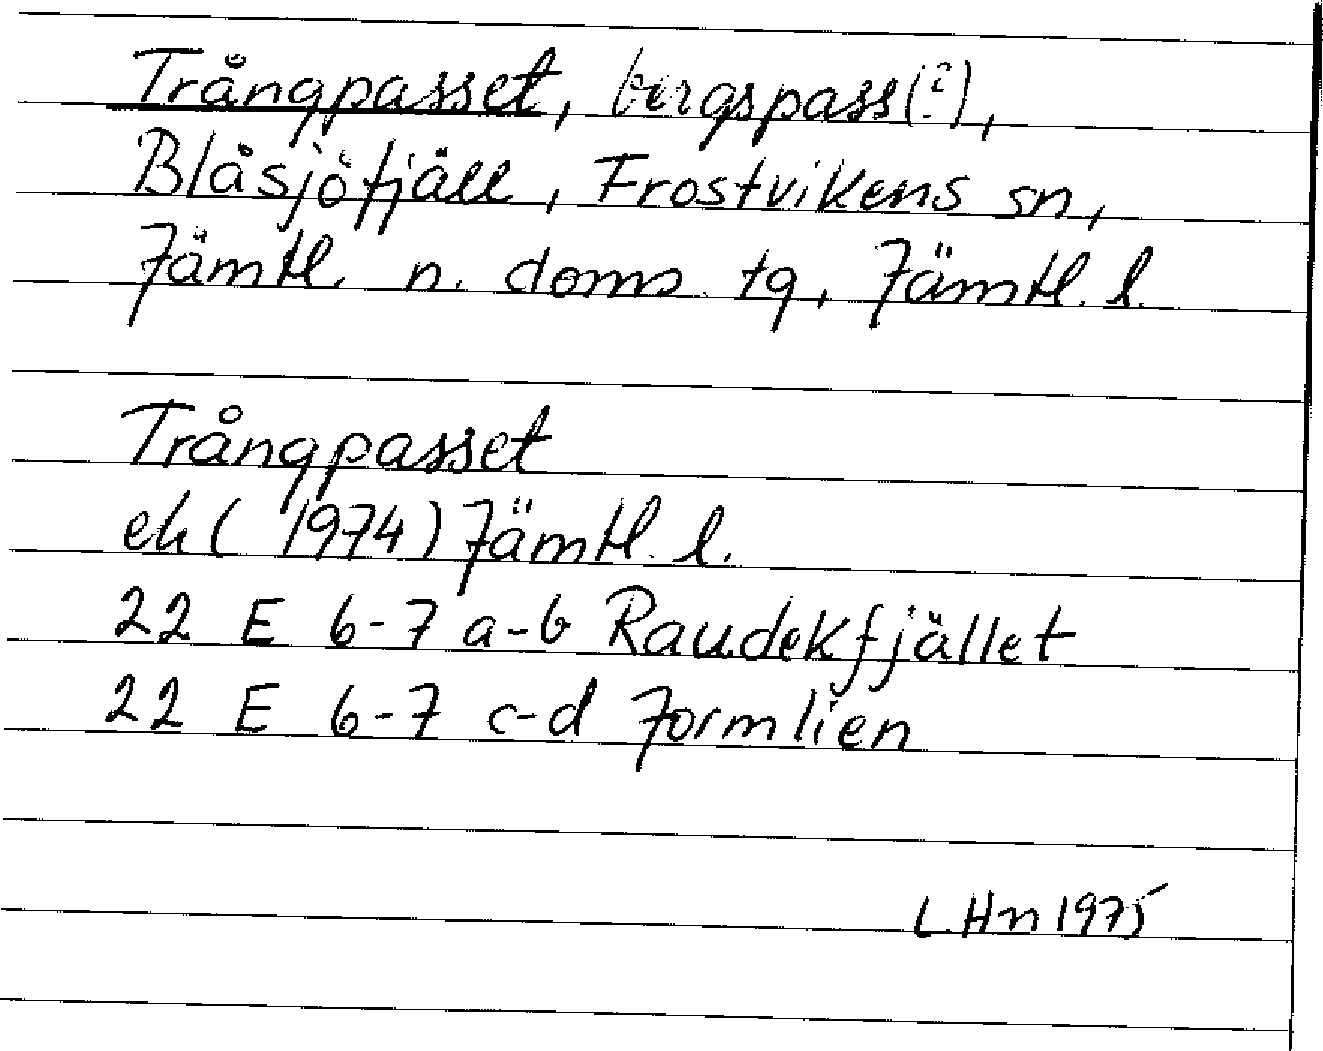 Trångpasset, bergspass(?),
Blåsjöfjäll, Frostvikens sn,
Jämtl. n. doms. tg, Jämtl. l.
Trångpasset
ek ( 1974) Jämtl. l.
22 E 6-7 a-b Raudekfjället
22 E 6-7 c-d Jormlien
L Hn 1975